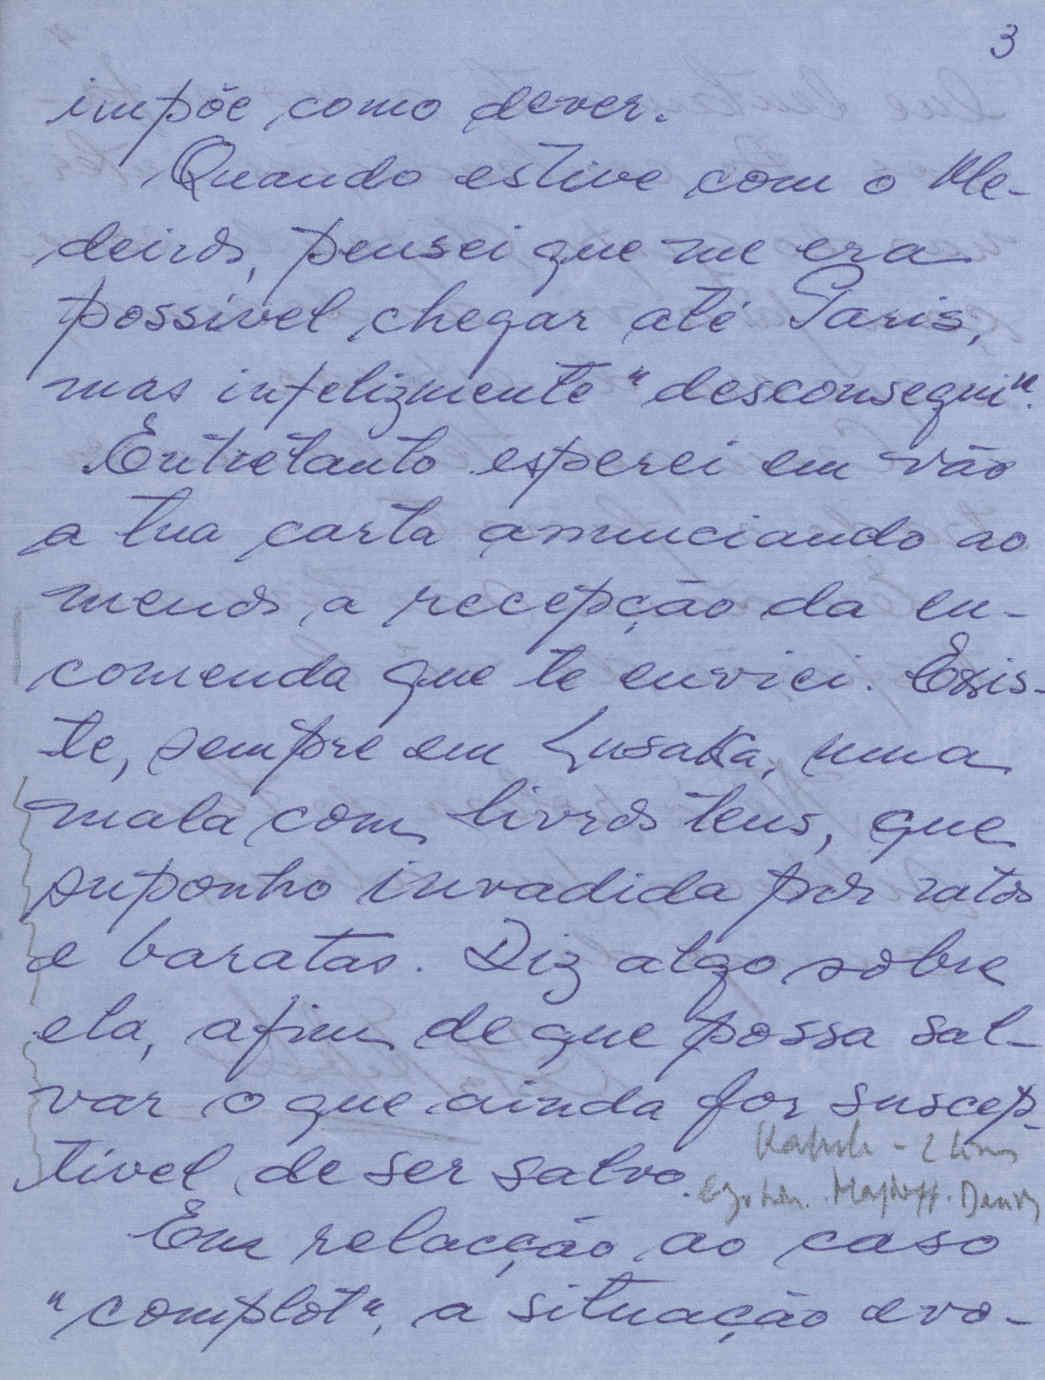 3
impõe como dever.
Quando estive com o Me-
deiros, pensei que me era
possível chegar até Paris,
mas infelizmente "desconsegui".
Entretanto esperei em vão
a tua carta anunciando ao
menos a recepção da en-
comenda que te enviei. Exis-
te, sempre em Lusaka, uma
mala com livros teus, que
suponho invadida por ratos
e baratas. Diz algo sobre
ela, afim de que possa sal-
var o que ainda for suscep-
tível de ser salvo.
Em relacção ao caso
"complot", a situação evo-